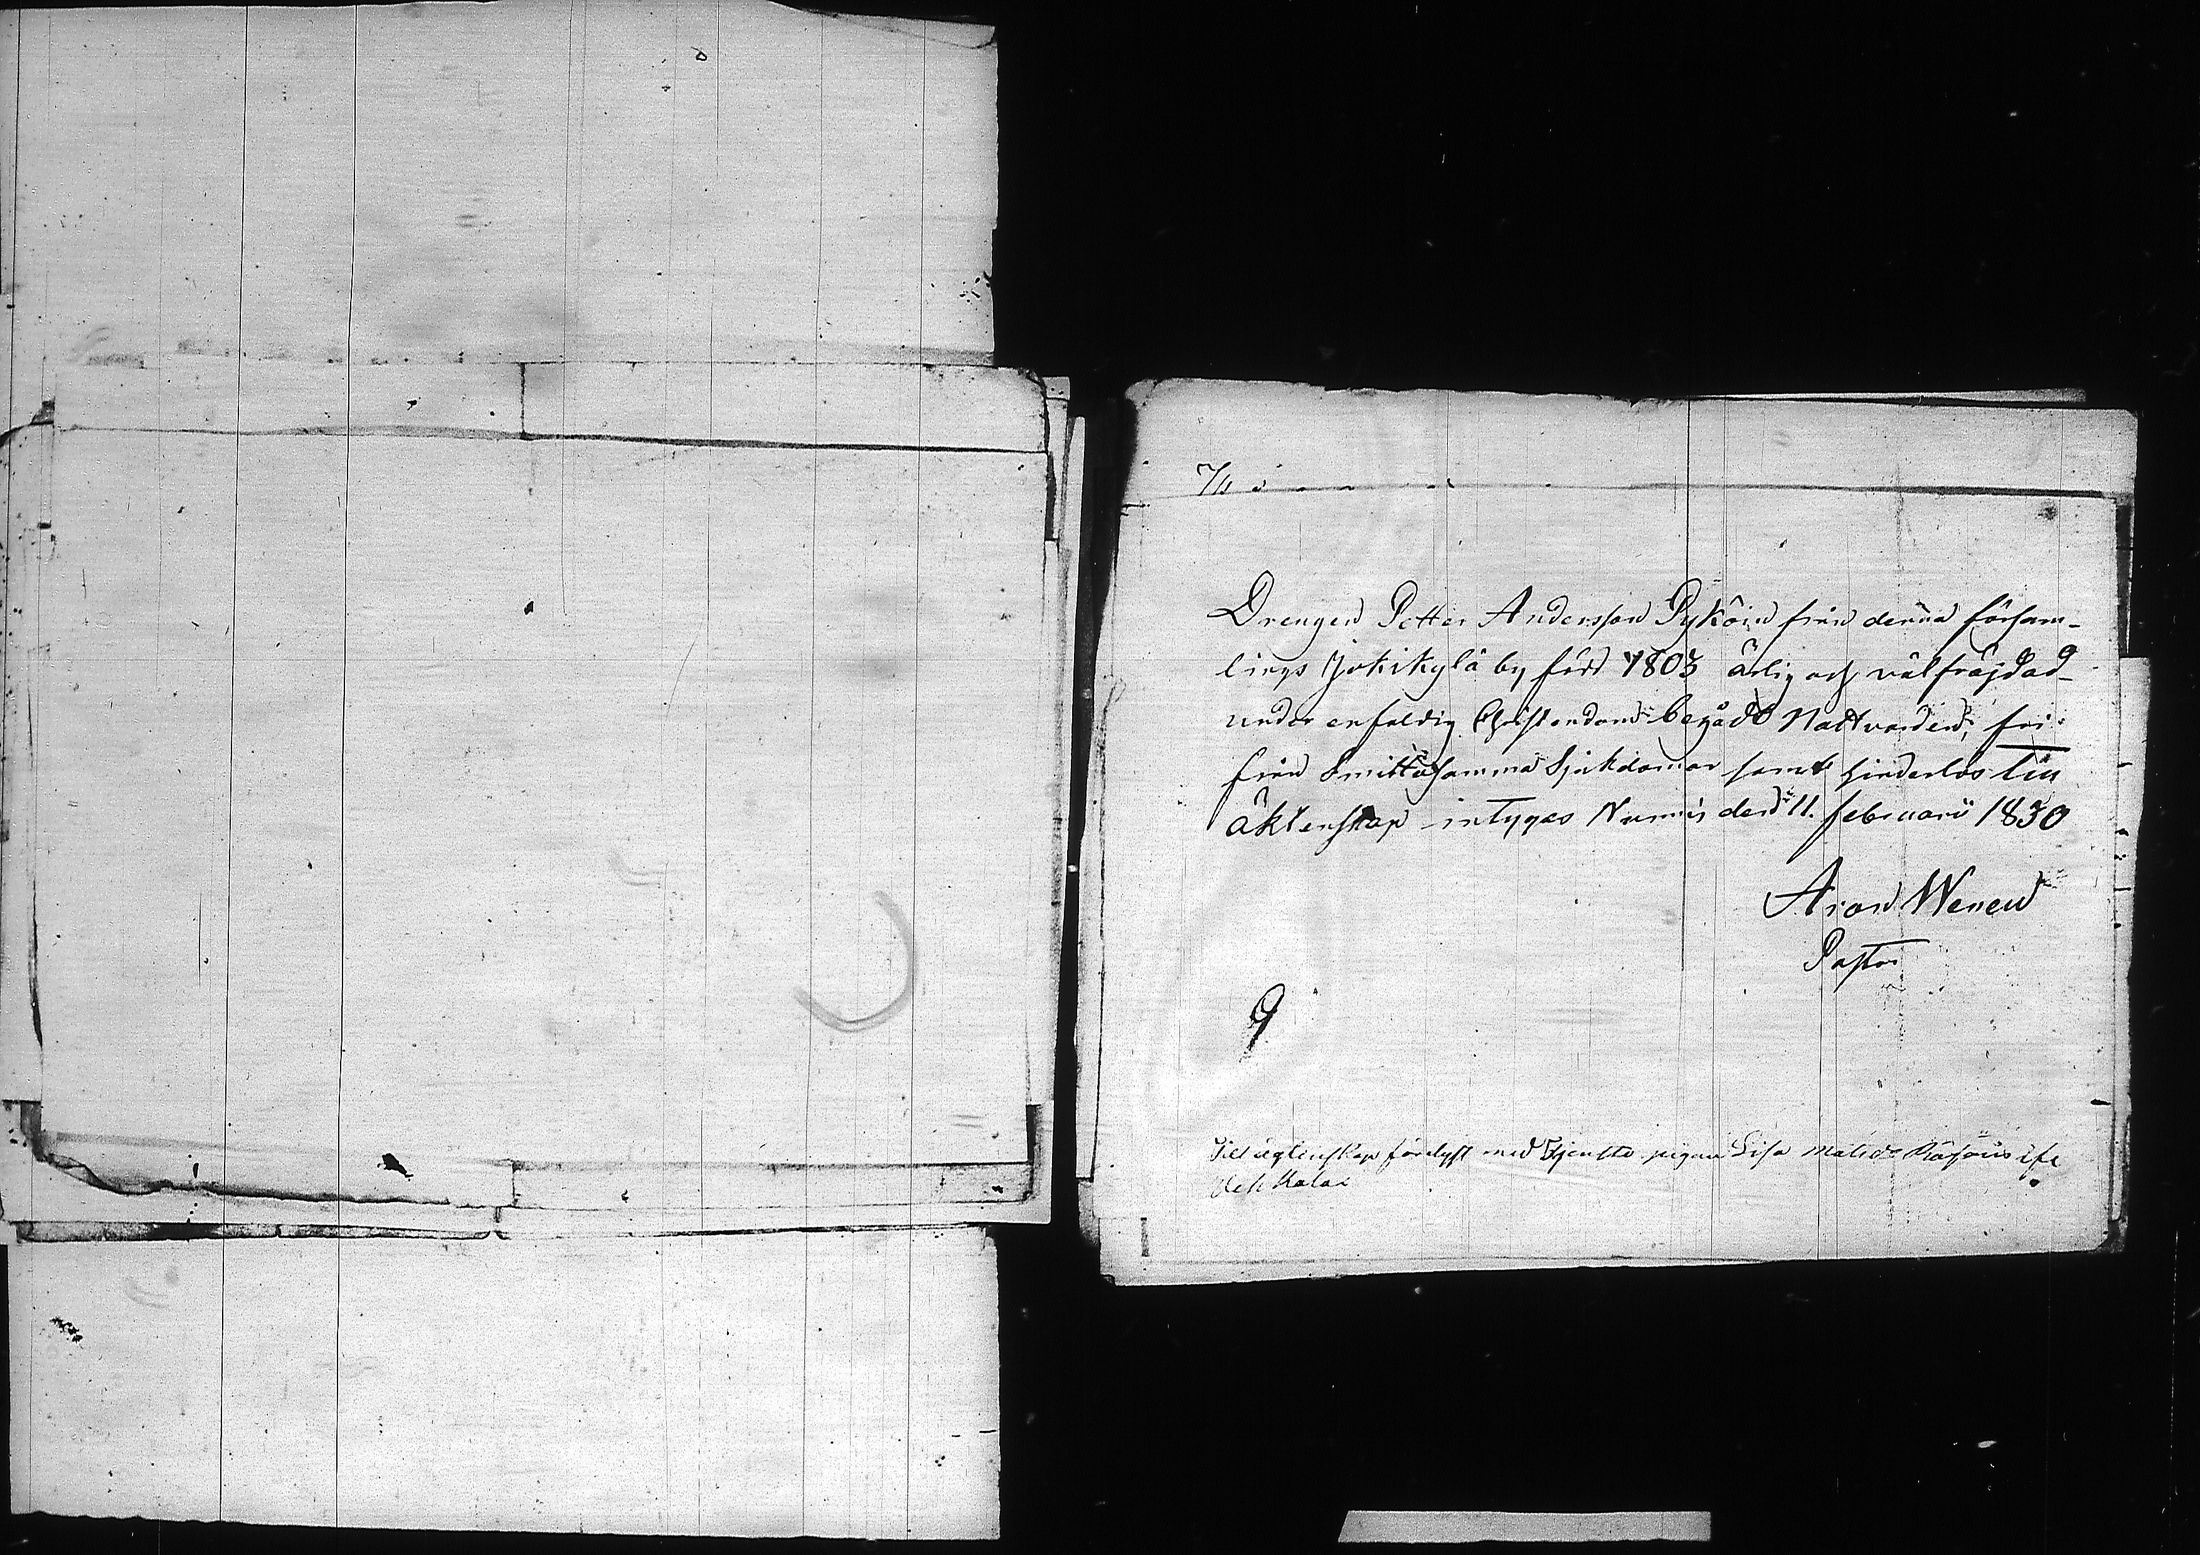 Drengen Petter Andersson Pyköin från denna försam-
lings Jokikylä by född 1803 ärlig och välfräjdad
under enfaldig Christendom begådt Nattvarden, fri
från Smittosamma Sjukdomar samt hinderlös till
äktenskap intygas Nurmis den 11. februarii 1830
Aron Wenen
Pastor
9
Till ägtenskap förelyst med tjenste pigan Lisa